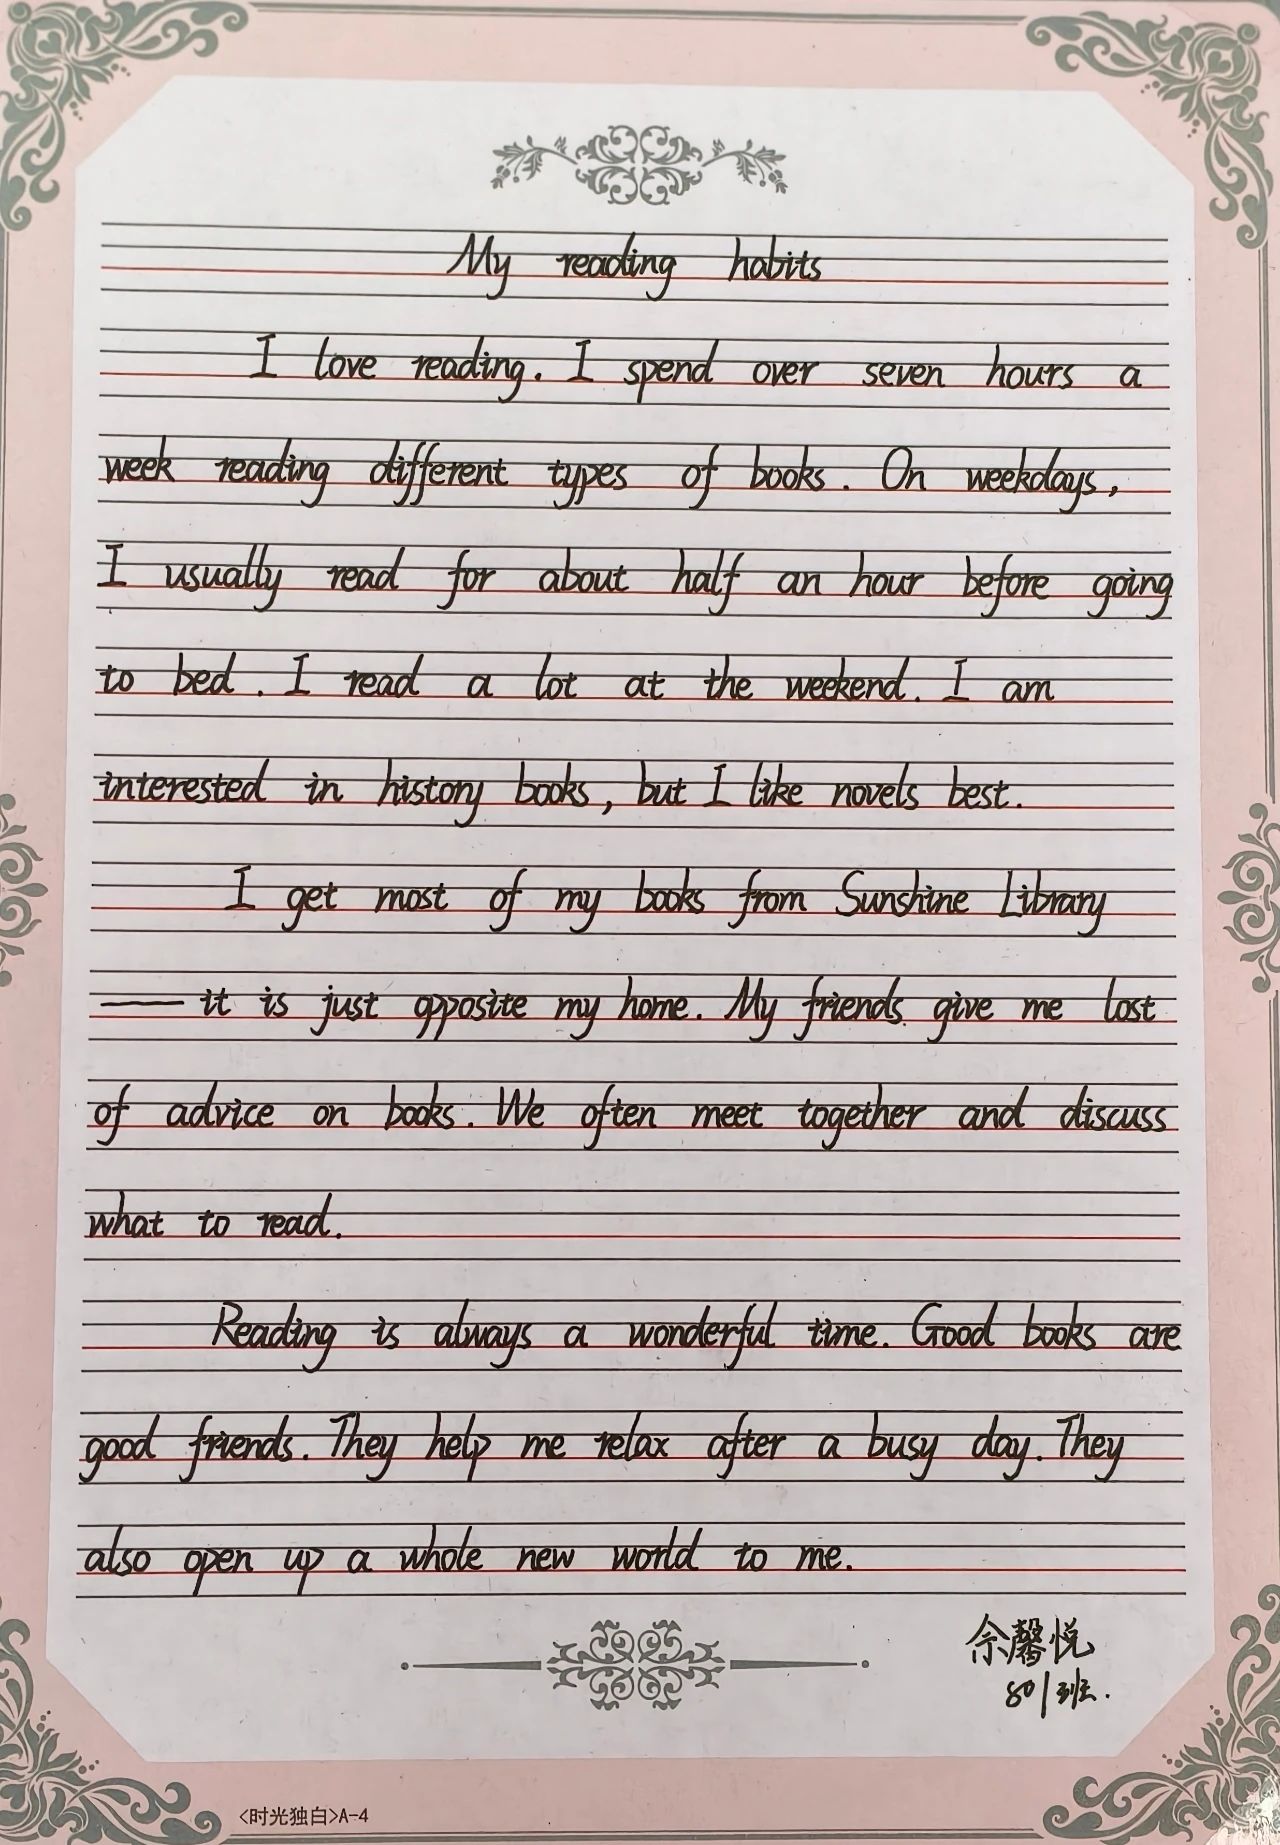 My reading habits
I love reading. I spend over seven hours a
week reading different types of books. On weekdays,
I usually read for about half an hour before going
to bed. I read a lot at the weekend. I am
interested in history books, but I like novels best.
I get most of my books from Sunshine Library
—— it is just opposite my home. My friends give me lost
of advice on books. We often meet together and discuss
what to read.
Reading is always a wonderful time. Good books are
good friends. They help me relax after a busy day. They
also open up a whole new world to me.
佘馨悦
801班.
<时光独白>A-4